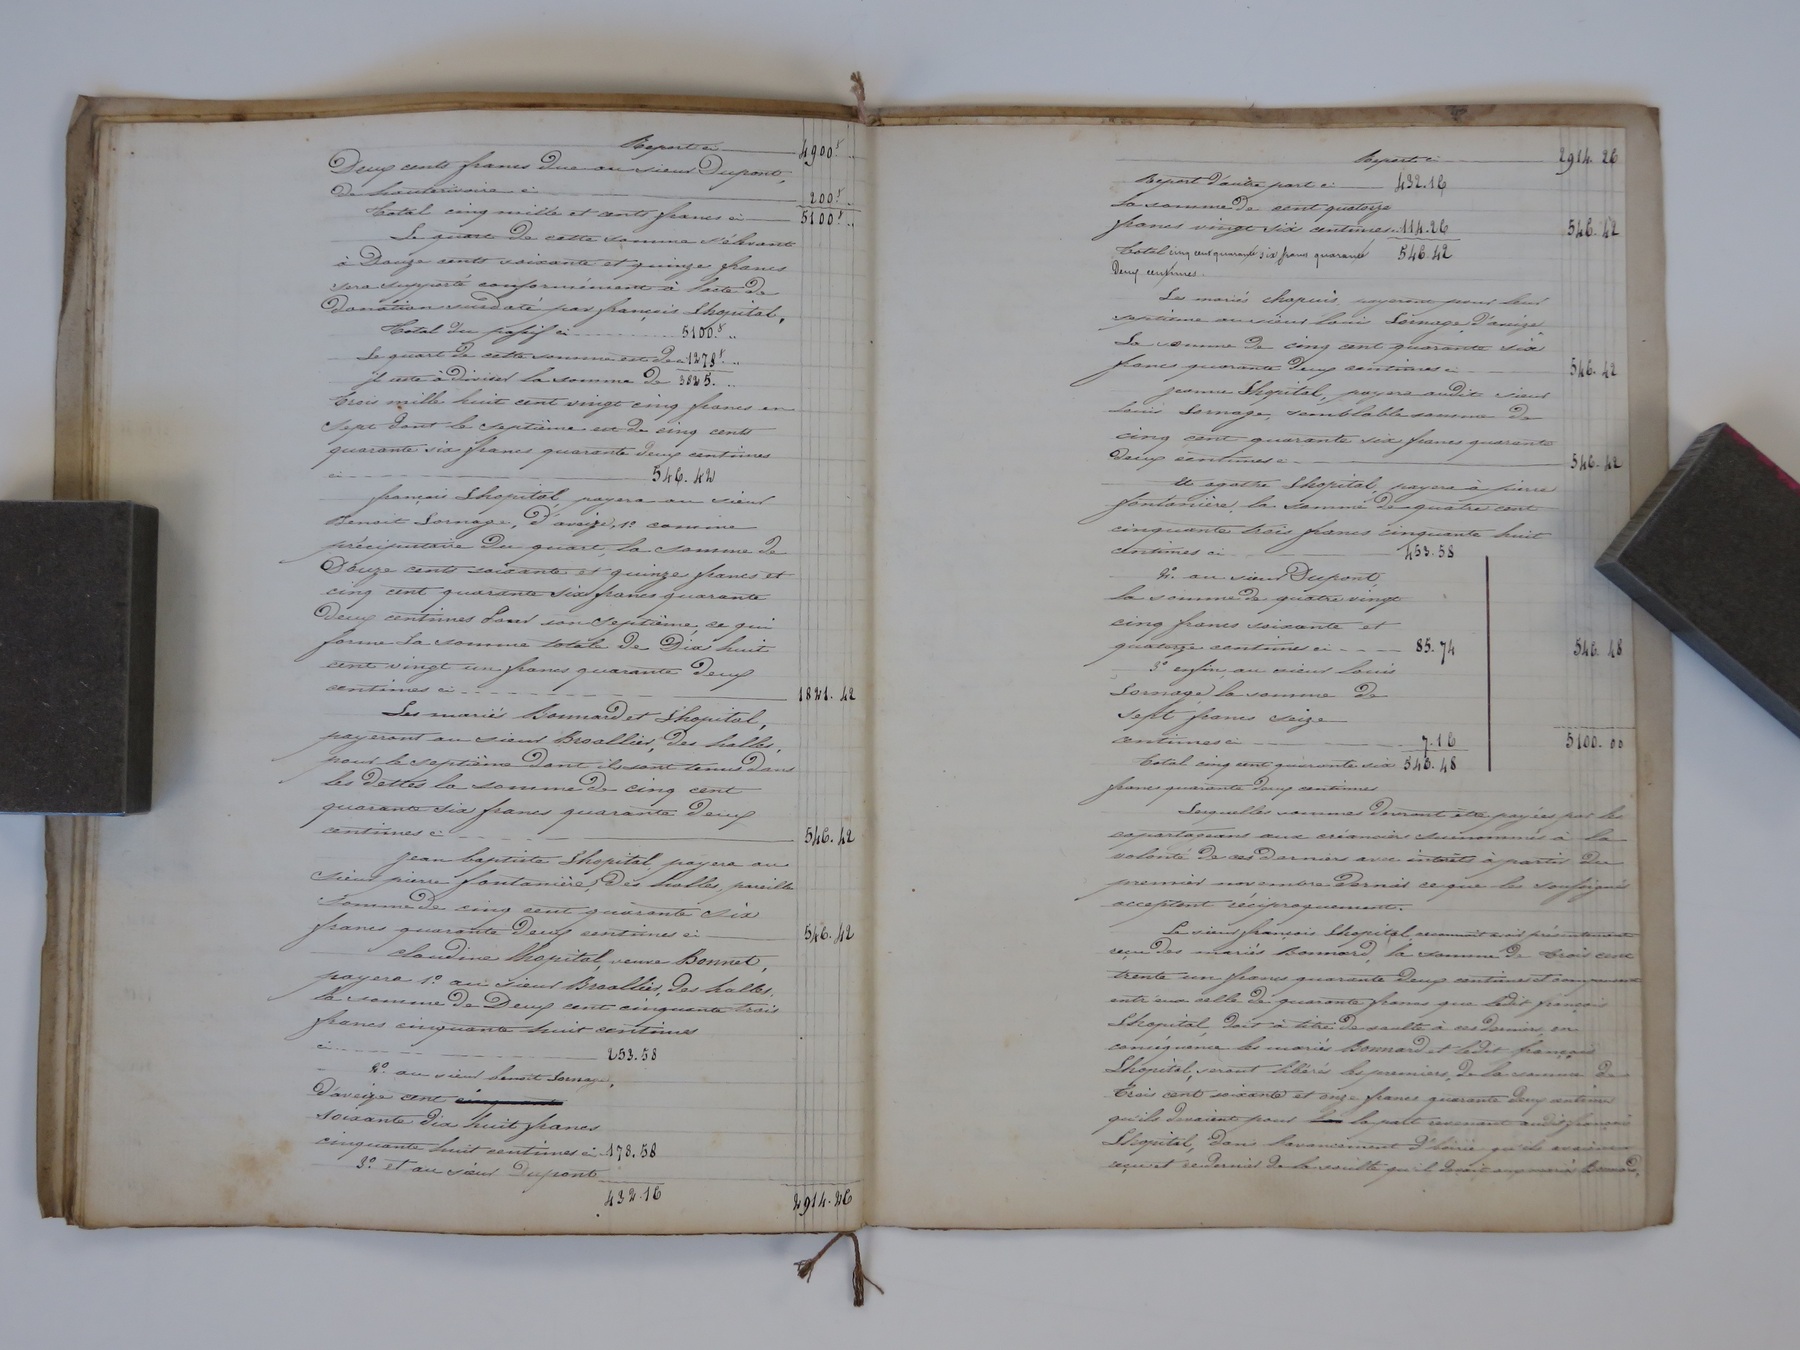 Report ci 4900f ..
Deux cents francs due au sieur Dupont,
de hauterivoire ci 200f ..
Total cinq mille et cents francs ci 5100f ..
Le quart de cette somme s'élevant
à Douze cents soixante et quinze francs
sera supporté conformément à l'acte de
donation susdaté par françois Lhopital,
Total du passif ci 5100f ..
Le quart de cette somme est de 1275f ..
Il reste à diviser la somme de 3825. ..
Trois mille huit cent vingt cinq francs en
sept dont le septième est de cinq cents
quarante six francs quarante deux centimes
ci 546.42
françois Lhopital, payera au sieur
Benoit Lornage, d'aveize, 1o comme
préciputaire du quart, la somme de
Douze cents soixante et quinze francs et
cinq cent quarante six francs quarante
deux centimes pour son septième, ce qui
forme la somme totale de Dix huit
cent vingt un francs quarante deux
centimes ci 1821. 42
Les mariés Bonnard et Lhopital,
payeront au sieur Broallier, des halles,
pour le septième dont ils sont tenus dans
les dettes la somme de cinq cent
quarante six francs quarante deux
centimes ci 546. 42
Jean baptiste Lhopital payera au
sieur pierre fontanière, des halles, pareille
somme de cinq cent quarante six
francs quarante deux centimes ci 546. 42
Claudine lhopital, veuve Bonnet,
payera 1o au sieur Broallier, des halles,
la somme de Deux cent cinquante trois
francs cinquante huit centimes
ci 253.58
2o au sieur benoit Lornage,
d'aveize cent
soixante dix huit francs
cinquante huit centimes ci 178.58
3o et au sieur Dupont
432.16 2914.26
Report ci 2914. 26
Report d'autre part ci 432.16
La somme de cent quatorze
francs vingt six centimes. 114.26 546. 42
Total cinq cent quarante six francs quarante 546.42
deux centimes.
Les mariés Chapuis, payeront pour leur
septième au sieur louis Lornage, d'aveize,
La somme de cinq cent quarante six
francs quarante deux centimes ci 546. 42
jeanne Lhopital, payera audit sieur
louis Lornage, semblable somme de
cinq cent quarante six francs quarante
deux centimes ci 546. 42
Et agathe Lhopital, payera à pierre
fontanière, la somme de quatre cent
cinquante trois francs cinquante huit
centimes ci 453.58
2o au sieur Dupont,
la somme de quatre vingt
cinq francs soixante et
quatorze centimes ci 85.74 546. 48
3o enfin au sieur louis
Lornage la somme de
sept francs seize
centimes ci 7.16 5100. 00
Total cinq cent quarante six 546.48
francs quarante deux centimes
Lesquelles sommes devront être payées par les
copartageans aux créanciers susnommés à la
volonté de ces derniers avec intérêts à partir du
premier novembre dernier ce que les soussignés
acceptent réciproquement.
Le sieur françois Lhopital, reconnait avoir présentement
reçu des mariés Bonnard, la somme de trois cent
trente un francs quarante deux centimes et compensent
entr'eux celle de quarante francs que ledit françois
Lhopital, doit à titre de soulte à ces derniers, en
conséquence les mariés Bonnard et ledit françois
Lhopital, seront libérés les premiers, de la somme de
trois cent soixante et onze francs quarante deux centimes
qu'ils devaient pour la part revenant audit françois
Lhopital, dans l'avancement d'hoirie qu'ils avaient
reçu et ce dernier de la soulte qu'il devait aux mariés Bonnard,